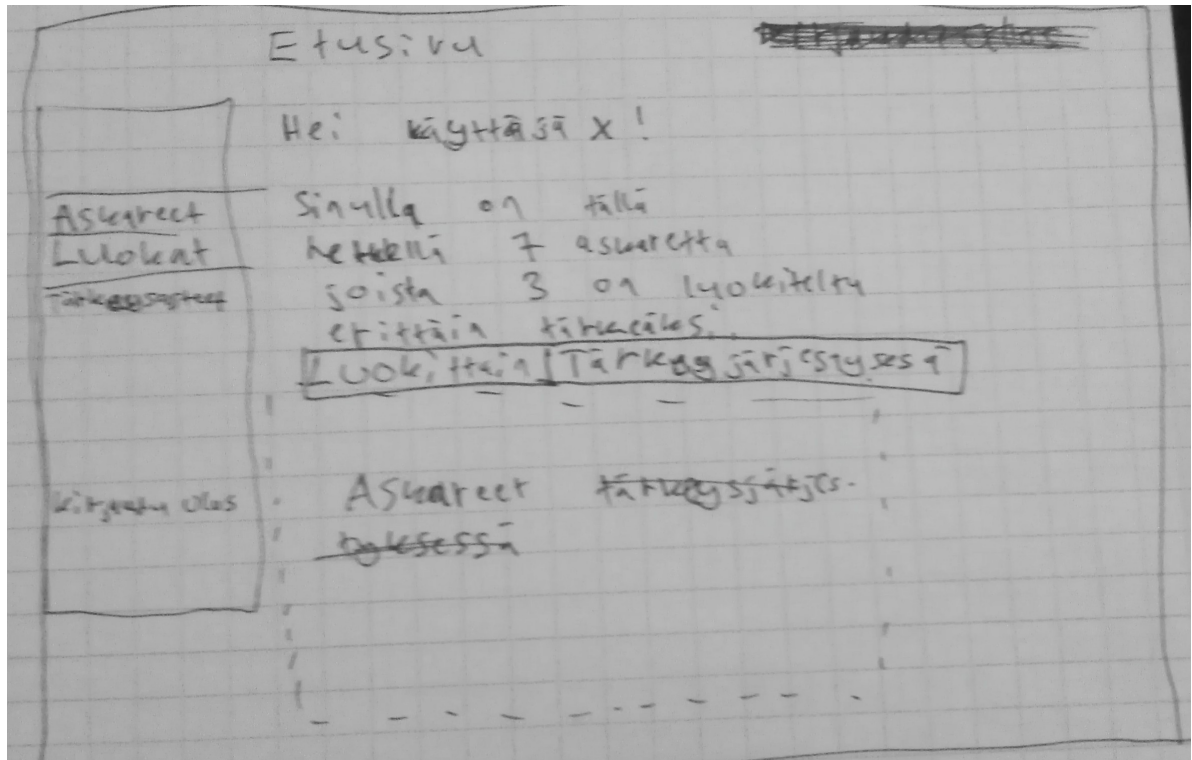 Etusivu
Kirjaudu ulos
Hei käyttäjä X!
Askareet
Luokat
Tärkeysasteet
Kirjaudu ulos
Sinulla on tällä
hetkellä 7 askaretta
joista 3 on luokiteltu
erittäin tärkeäksi.
Luokittain Tärkeysjärjestyksesä
Askareet tärkeysjärjes-
tyksessä